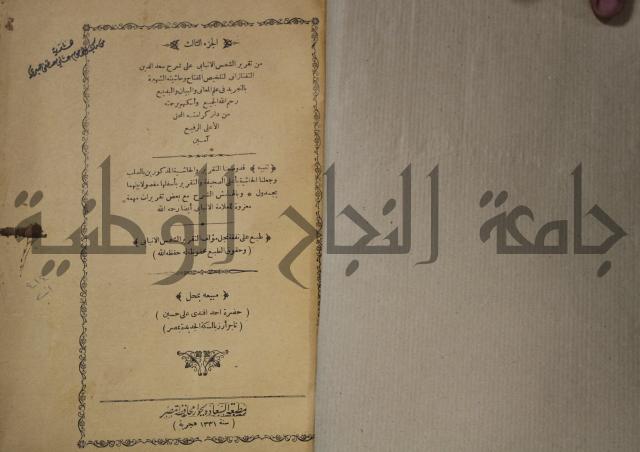 ﴿ الجزء الثالث ﴾
من تقرير الشمس الانبابى على شرح سعد الدين
التفتازانى لتلخيص المفتاح وحاشيته الشهيرة
بالتجريد فى علم المعانى والبيان والبديع
رحم الله الجميع وأسكنهم برحمته
من دار كرامته المحل
الأعلى الرفيع
آمين
﴿ تنبيه ﴾ قد وضعنا التقرير والحاشية المذكورين بالصلب
وجعلنا الحاشية بأعلى الصحيفة والتقرير بأسفلها مفصولا بينهما
بجدول * وبالهامش الشرح مع بعض تقريرات مهمة
معزوة للعلامة الانبابى أيضا رحمه الله
﴿ طبع على نفقة نجل مؤلف التقرير الشمس الانبابى ﴾
( وحقوق الطبع محفوظة له حفظه الله )
﴿ مبيعه بمحل ﴾
( حضرة احمد افندى على حسين )
( تاجر أرز بالسكة الجديدة بمصر )
مطبعة السعادة بجوار محافظة مصر
( سنة ١٣٣١ هجرية )
جامعة النجاح الوطنية